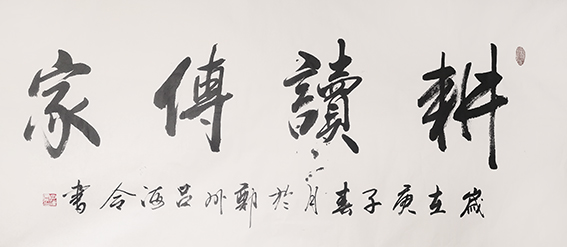 耕讀傳家
歲在庚子春二月於鄭州呂海合書